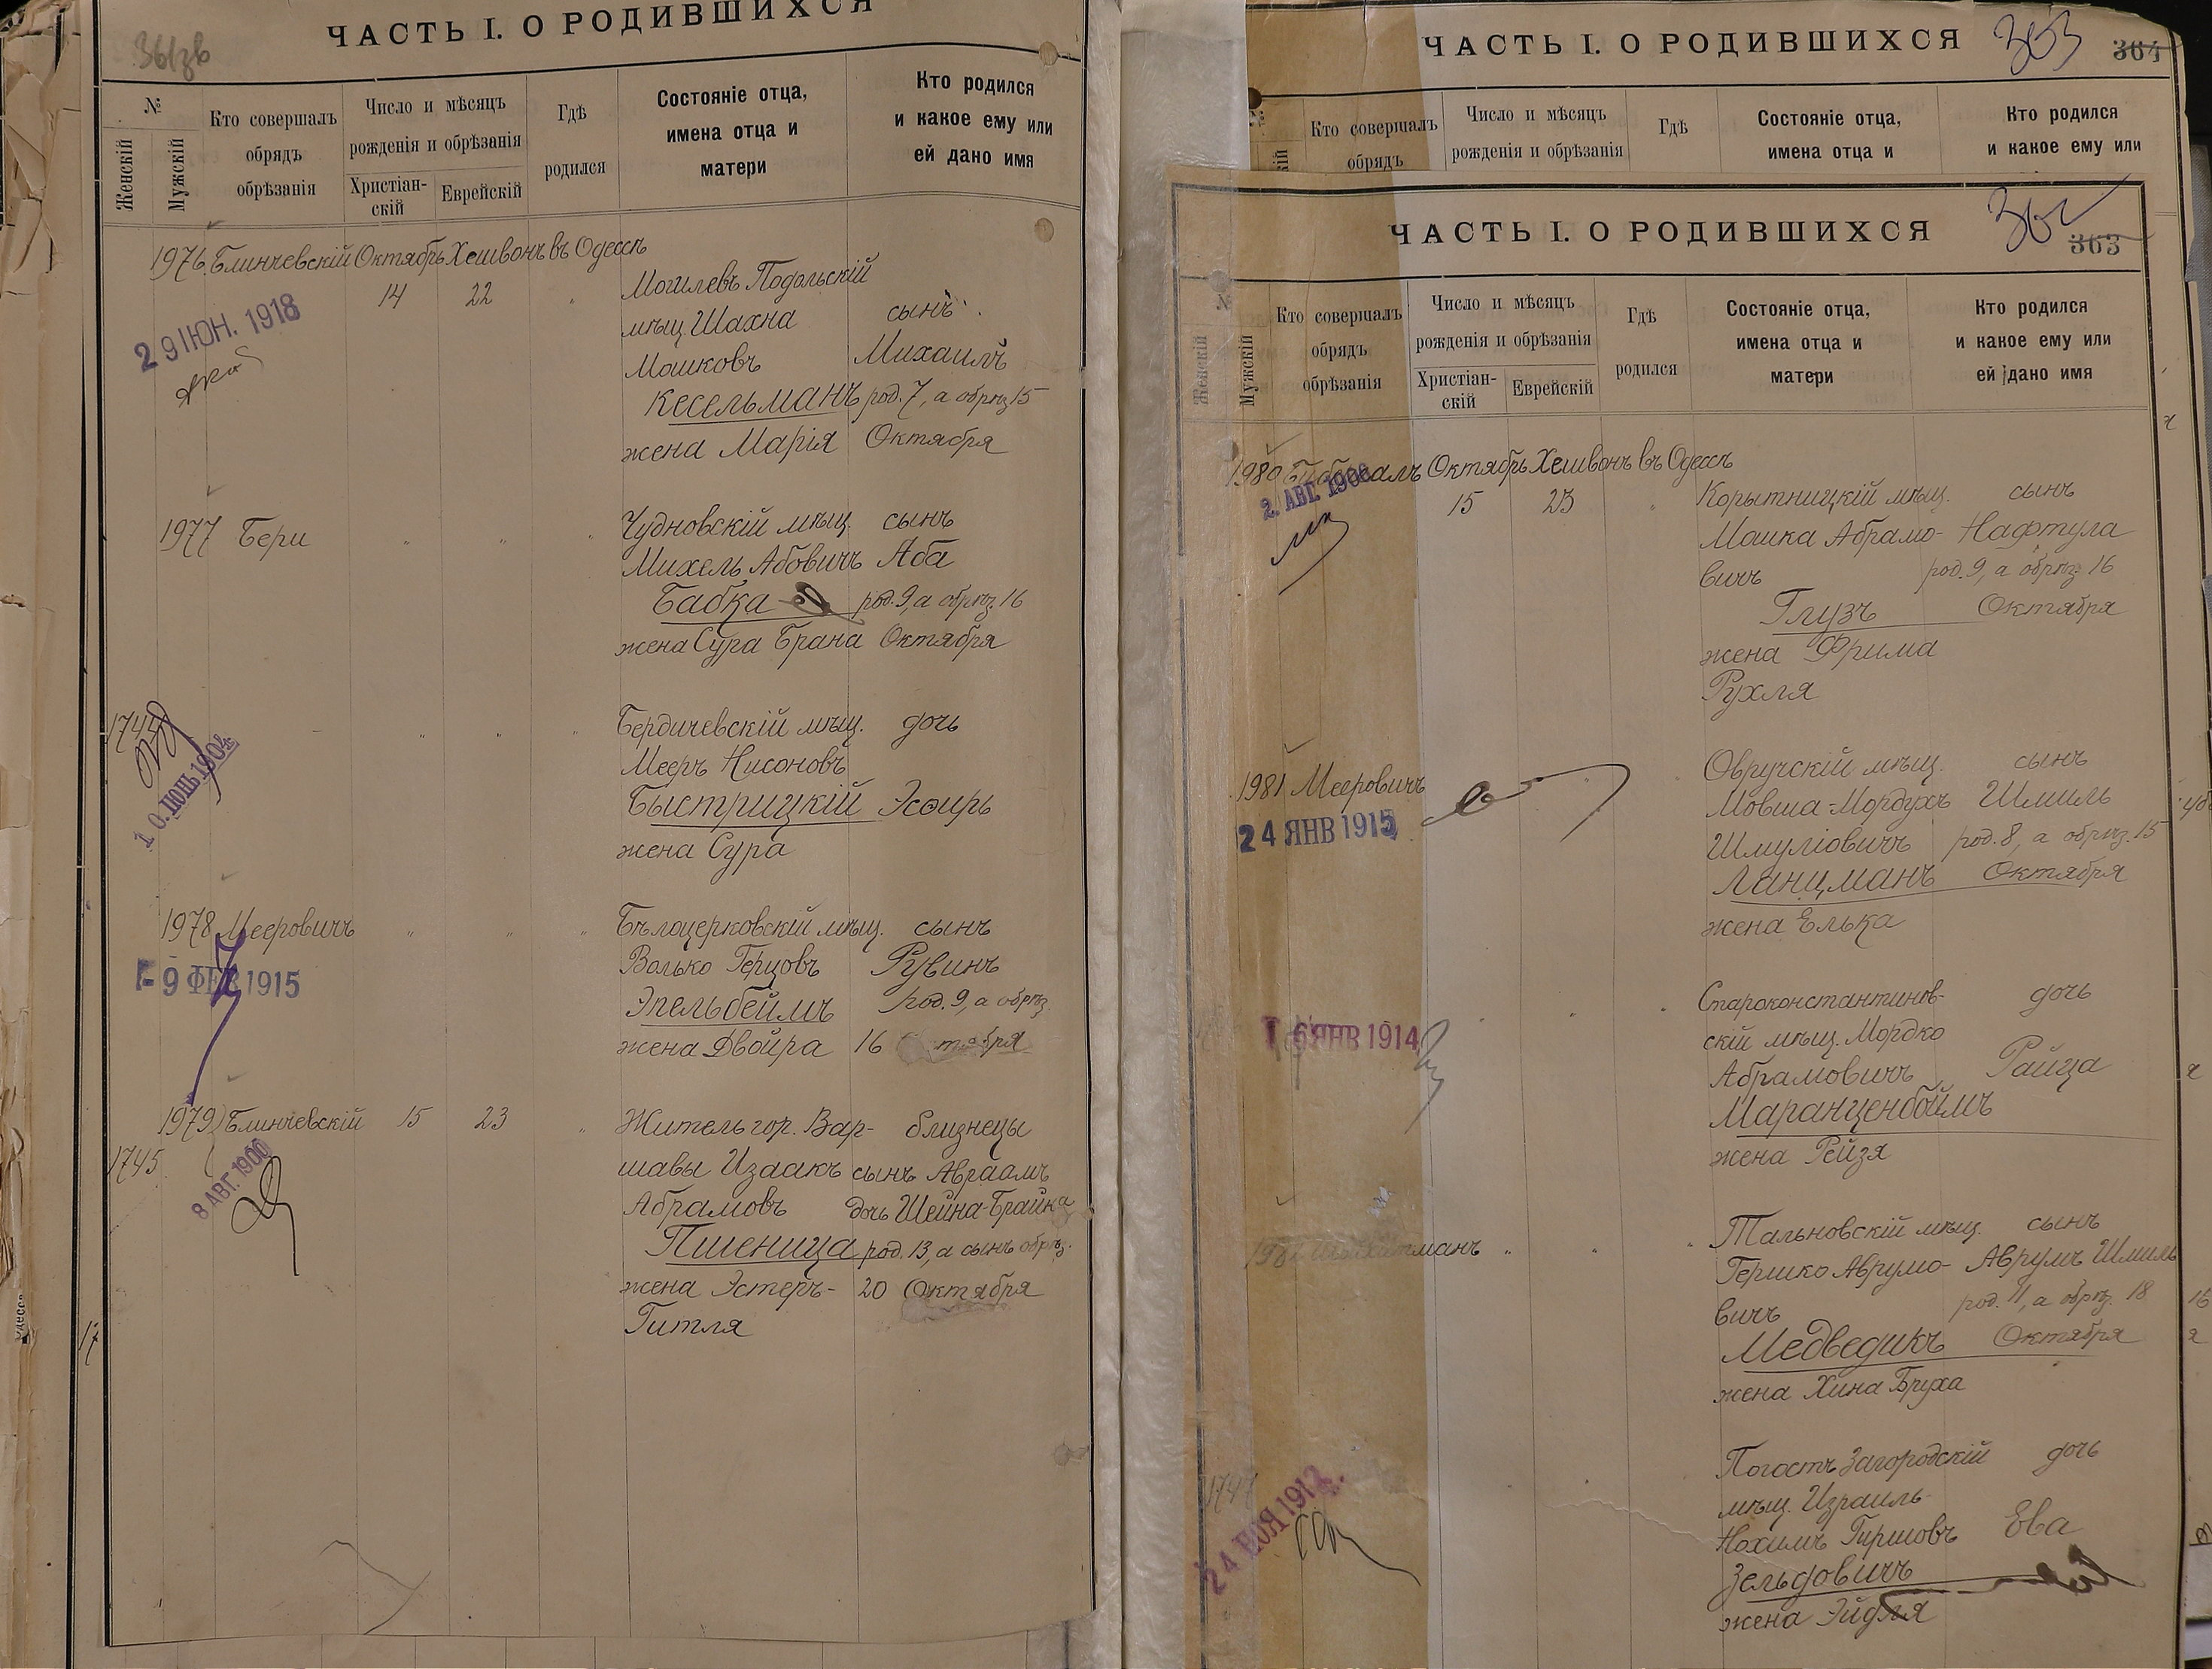 361зв
ЧАСТЬ I. О РОДИВШИХСЯ
№
Женскій
Мужскій
Кто совершалъ
обрядъ
обрѣзанія
Число и мѣсяцъ
рожденія и обрѣзанія
Христіан-
скій
Еврейскій
Гдѣ
родился
Состояніе отца,
имена отца и
матери
Кто родился
и какое ему или
ей дано имя
1976 Блинчевскій Октябрь Хешвонъ въ Одессѣ
14 22
Могилевъ Подольскій
мѣщ Шахна сынъ
Мошковъ Михаилъ
Кесельманъ род. 7, а обрѣз 15
жена Марія Октября
29 ІЮН. 1918
1977 Бери " " "
Чудновскій мѣщ. сынъ
Михель Абовичъ Аба
Бабка род. 9, а обрѣз. 16
жена Сура Брана Октября
Бердичевскій мѣщ. дочь
Мееръ Нисоновъ
Быстрицкій Эсѳирь
жена Сура
10. ІЮНЬ 1904
1978 Мееровичъ " " "
Бѣлоцерковскій мѣщ. сынъ
Волько Герцовъ Рувинъ
Эпельбеймъ род. 9, а обрѣз.
жена Двойра 16 тября
9 ФЕВ 1915
1979 Блинчевскій 15 23 "
1745
Житель гор. Вар- близнецы
шавы Изаакъ сынъ Авраамъ
Абрамовъ дочь Шейна-Брайна
Пшеница род. 13, а сынъ обрѣз.
жена Эстеръ- 20 Октября
Гитля
8 АВГ. 1900
17
ЧАСТЬ I. О РОДИВШИХСЯ
363
364
Кто совершалъ
обрядъ
Число и мѣсяцъ
рожденія и обрѣзанія
Гдѣ
Состояніе отца,
имена отца и
Кто родился
и какое ему или
ЧАСТЬ I. О РОДИВШИХСЯ
362
363
Женскій
Мужскій
Кто совершалъ
обрядъ
обрѣзанія
Число и мѣсяцъ
рожденія и обрѣзанія
Христіан-
скій
Еврейскій
Гдѣ
родился
Состояніе отца,
имена отца и
матери
Кто родился
и какое ему или
ей дано имя
1980 Октябрь Хешвонъ въ Одессѣ
15 23 "
2. АВГ. 1906
Корытницкій мѣщ. сынъ
Мошка Абрамо- Нафтула
вичъ род. 9, а обрѣз. 16
Глузъ Октября
жена Фрима
Рухля
1981 Мееровичъ
24 ЯНВ 1915
Овручскій мѣщ. сынъ
Мовша-Мордухъ Шмиль
Шмуліовичъ род. 8, а обрѣз. 15
Ланцманъ Октября
жена Елька
16 ЯНВ 1914
Староконстантинов- дочь
скій мѣщ. Мордко
Абрамовичъ Райца
Маранценбоймъ
жена Рейзя
манъ " " "
Тальновскій мѣщ. сынъ
Гершко Аврумо- Аврумъ Шмиль
вичъ род. 11, а обрѣз. 18
Медведикъ Октября
жена Хина Бруха
1747
24 НОЯ 1912
Погостъ Загородскій дочь
мѣщ. Израиль
Нохимъ Гиршовъ Ева
Зельдовичъ
жена Эйдля